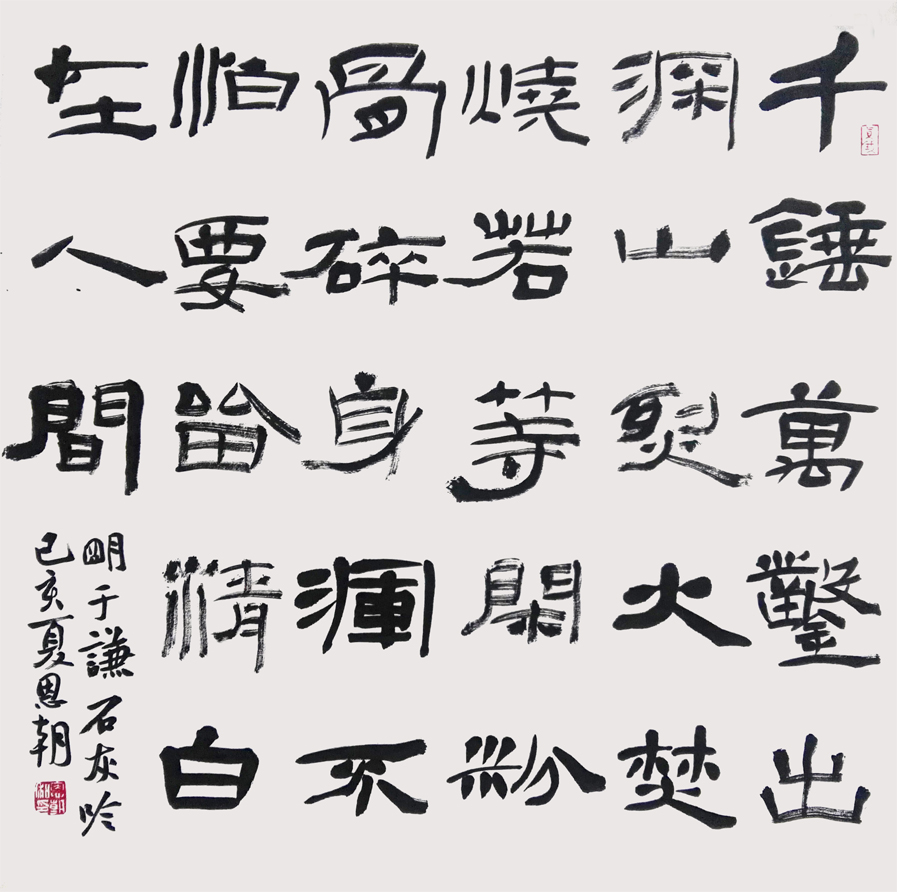 千錘萬鑿出
深山烈火焚
燒若等閑粉
骨碎身渾不
怕要留清白
在人間
明于謙石灰吟
己亥夏恩朝